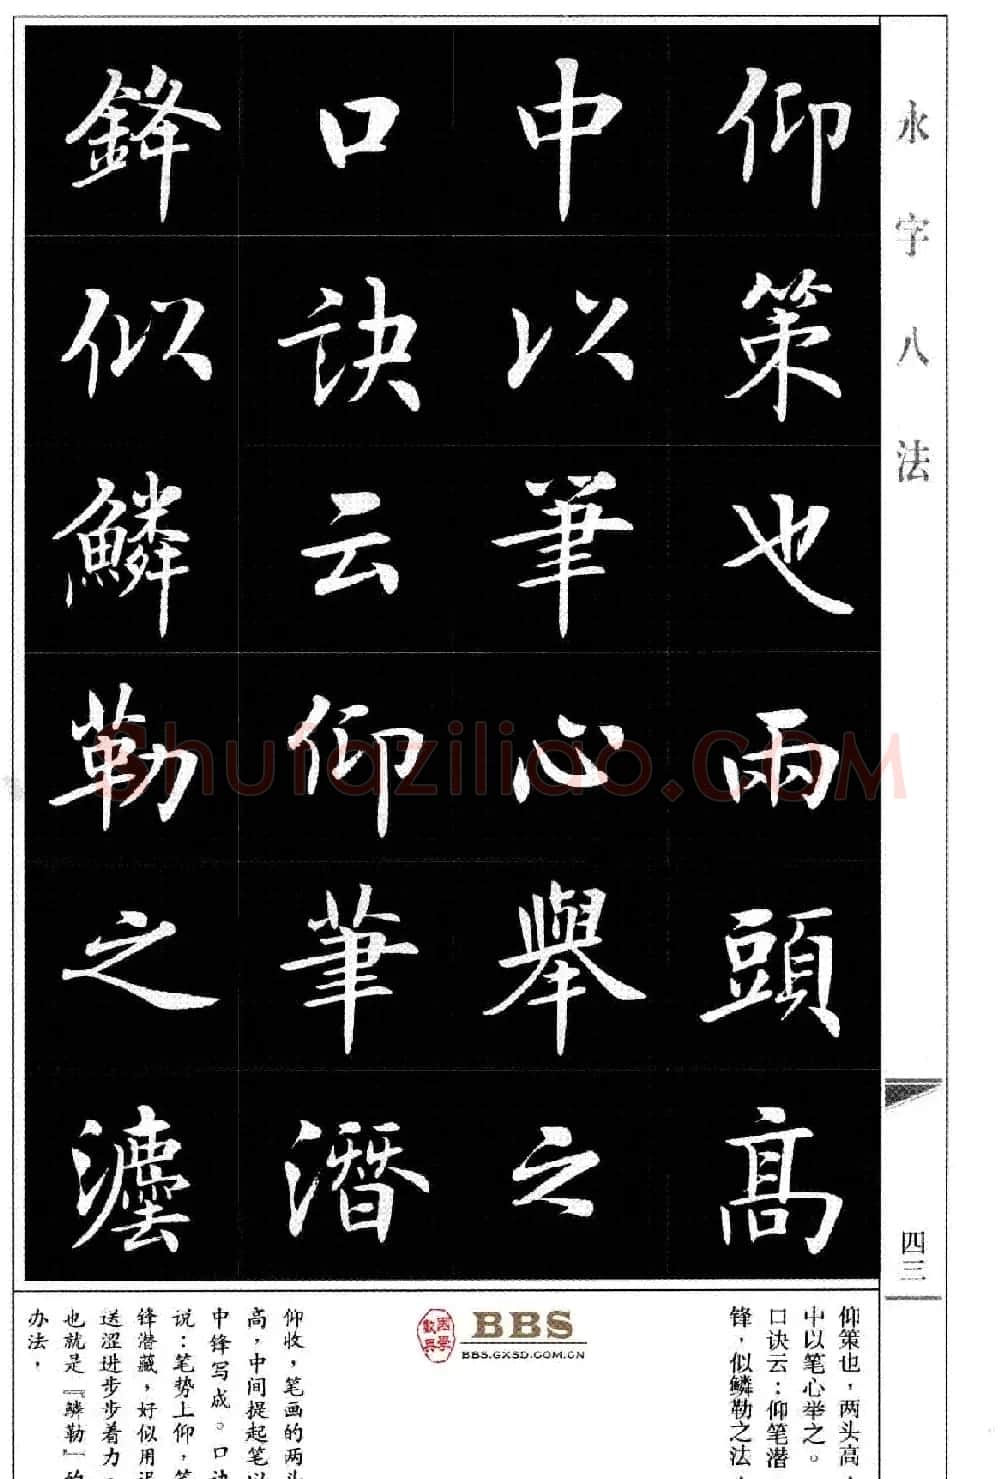 永字八法
仰策也兩頭高
中以筆心舉之
口訣云仰筆潛
鋒似鱗勒之灋
四三
仰策也，两头高
中以笔心举之。
口诀云：仰笔潜
锋，似鳞勒之法，
仰收，笔画的两头
高，中间提起笔以
中锋写成。口诀
说：笔势上仰，笔
锋潜藏，好似用
送涩进步步着力，
也就是『鳞勒』的
办法，
BBS
BBS.GXSD.COM.CN
Shufaziliao.COM